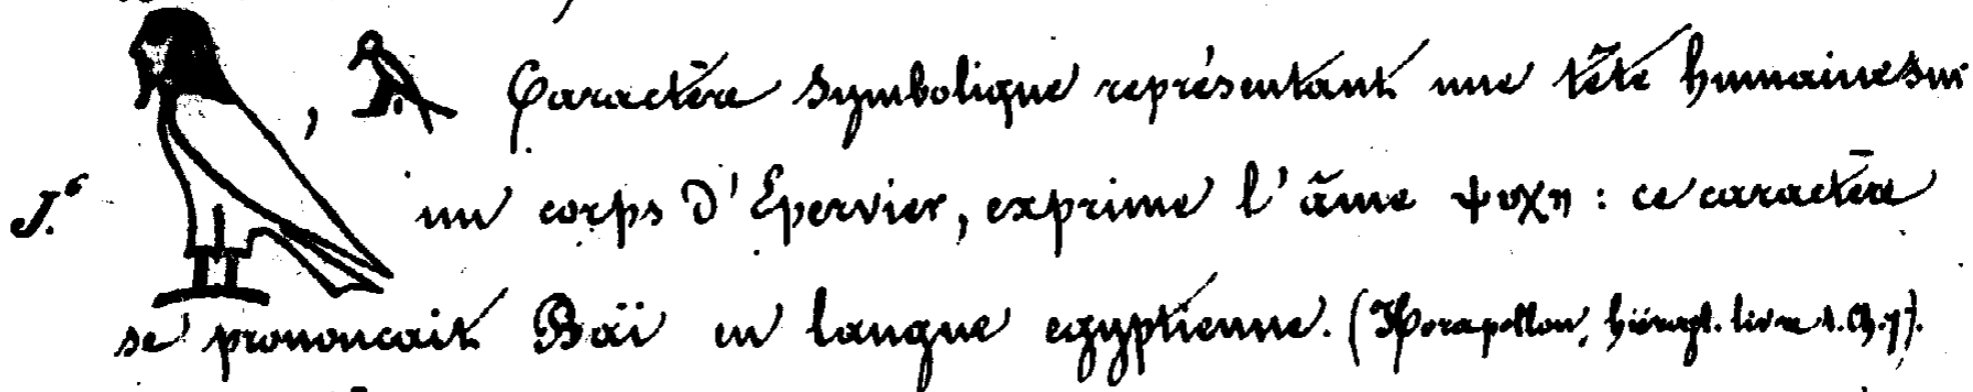 , Caractère symbolique représentant une tête humaine sur
J.° un corps d'Epervier, exprime l'âme ψυχη : ce caractère
se prononcait Baï en langue egyptienne. (Horapollon, hiérogl. livre 1. Ch. 7).